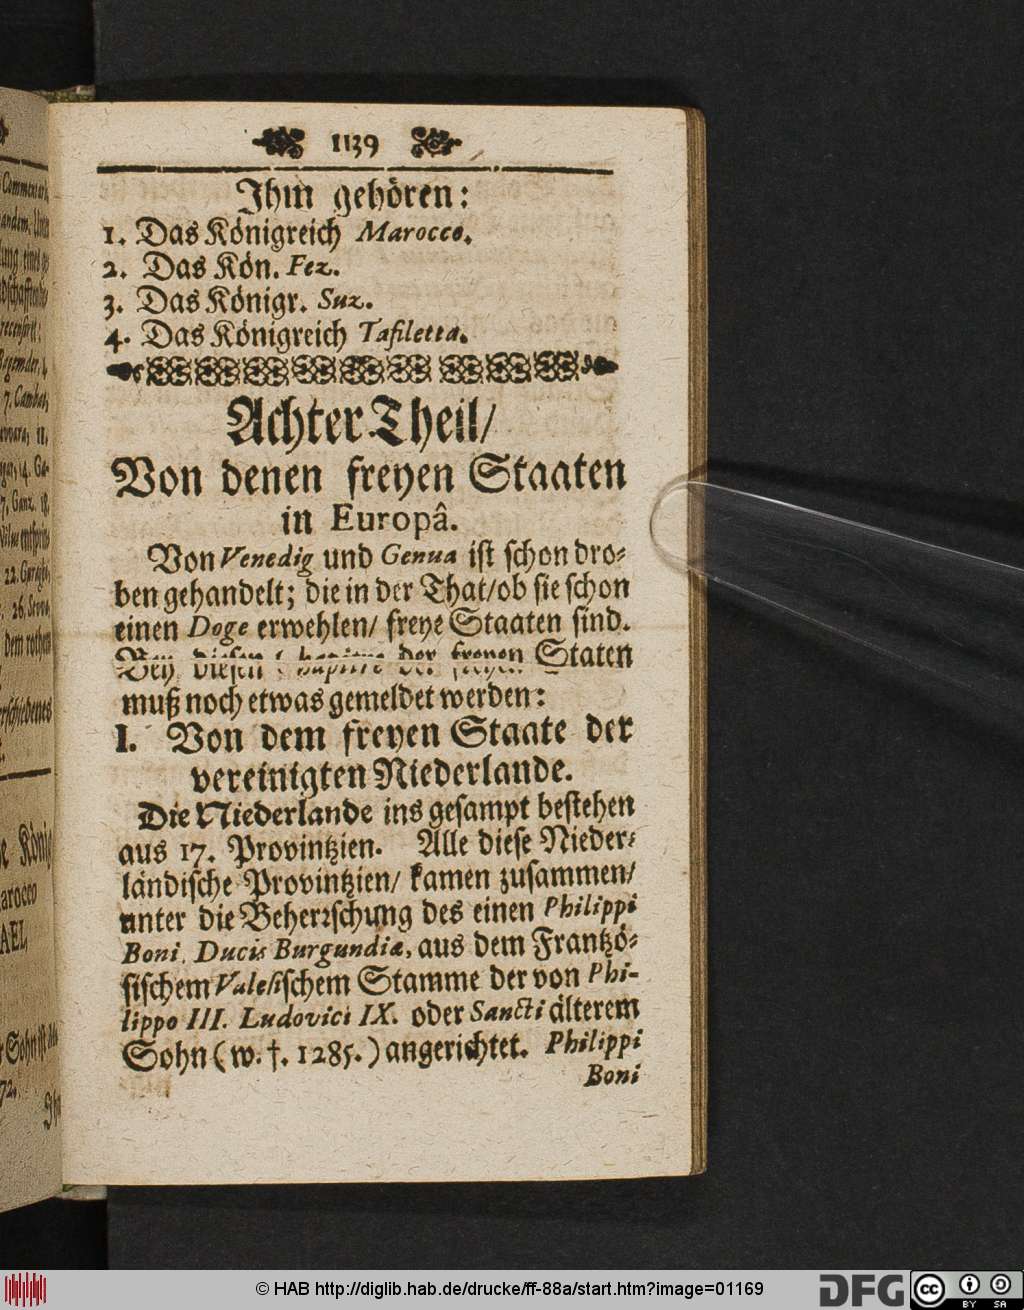 1139
Ihm gehören:
1. Das Königreich Marocco.
2. Das Kön. Fez.
3. Das Königr. Suz.
4. Das Königreich Tafiletta.
Achter Theil/
Von denen freyen Staaten
in Europâ.
Von Venedig und Genua ist schon dro-
ben gehandelt; die in der That/ob sie schon
einen Doge erwehlen/ freye Staaten sind.
Bey diesen der freyen Staten
muß noch etwas gemeldet werden:
I. Von dem freyen Staate der
vereinigten Niederlande.
Die Niederlande ins gesampt bestehen
aus 17. Provintzien. Alle diese Nieder-
ländische Provintzien/ kamen zusammen/
unter die Beherrschung des einen Philippi
Boni, Ducis Burgundiæ, aus dem Frantzö-
sischem Valesischem Stamme der von Phi-
lippo III. Ludovici IX. oder Sancti älterem
Sohn (w. †. 1285.) angerichtet. Philippi
Boni
© HAB http://diglib.hab.de/drucke/ff-88a/start.htm?image=01169
DFG
cc BY SA